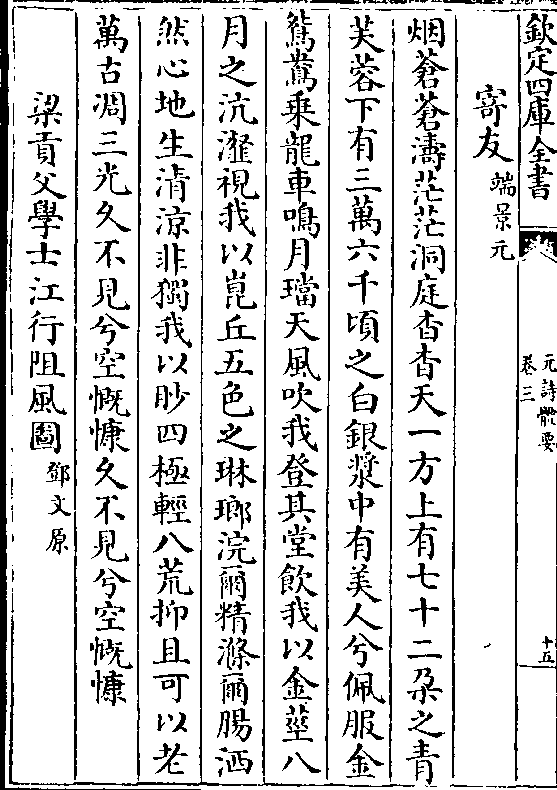 欽定四庫全書
元詩體要
卷三
十五
寄友 端景元
烟蒼蒼濤茫茫洞庭杳杳天一方上有七十二朶之青
芙蓉下有三萬六千頃之白銀漿中有美人兮佩服金
鴛鴦乗龍車鳴月璫天風吹我登其堂飲我以金莖八
月之沆瀣視我以崑丘五色之琳瑯浣爾精滌爾腸洒
然心地生清凉非獨我以眇四極輕八荒抑且可以老
萬古凋三光久不見兮空慨慷久不見兮空慨慷
梁貢父學士江行阻風圖 鄧文原